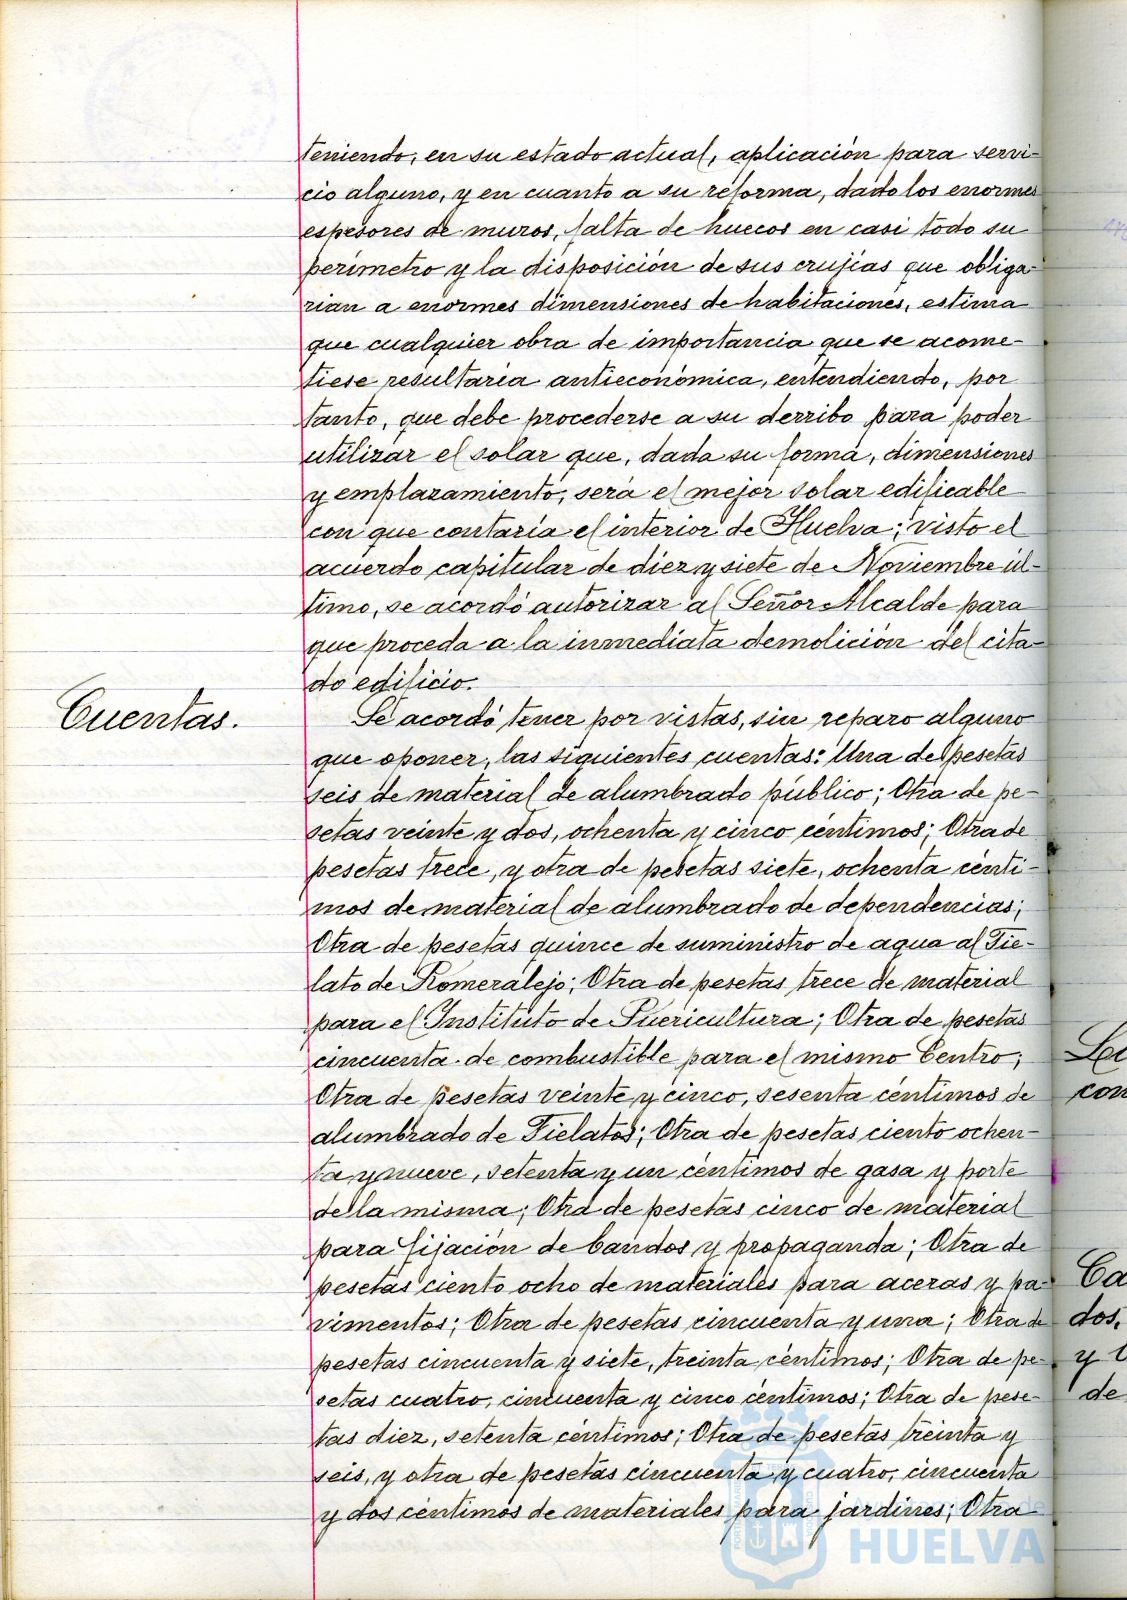 teniendo, en su estado actual, aplicación para servi-
cio alguno, y en cuanto a su reforma, dado los enormes
espesores de muros, falta de huecos en casi todo su
perímetro y la disposición de sus crujías que obliga-
rian a enormes dimensiones de habitaciones, estima
que cualquier obra de importancia que se acome-
tiese resultaría antieconómica, entendiendo, por
tanto, que debe procederse a su derribo para poder
utilizar el solar que, dada su forma, dimensiones
y emplazamiento, será el mejor solar edificable
con que contaría el interior de Huelva; visto el
acuerdo capitular de diez y siete de Noviembre úl-
timo, se acordó autorizar al Señor Alcalde para
que proceda a la inmediata demolición del cita-
do edificio.
Cuentas.
Se acordó tener por vistas, sin reparo alguno
que oponer, las siguientes cuentas: Una de pesetas
seis de material de alumbrado público; Otra de pe-
setas veinte y dos, ochenta y cinco céntimos; Otra de
pesetas trece, y otra de pesetas siete, ochenta cénti-
mos de material de alumbrado de dependencias;
Otra de pesetas quince de suministro de agua al Fie-
lato de Romeralejo; Otra de pesetas trece de material
para el Instituto de Puericultura; Otra de pesetas
cincuenta de combustible para el mismo Centro;
Otra de pesetas veinte y cinco, sesenta céntimos de
alumbrado de Fielatos; Otra de pesetas ciento ochen-
ta y nueve, setenta y un céntimos de gasa y porte
de la misma; Otra de pesetas cinco de material
para fijación de bandos y propaganda; Otra de
pesetas ciento ocho de materiales para aceras y pa-
vimentos; Otra de pesetas cincuenta y una; Otra de
pesetas cincuenta y siete, treinta céntimos; Otra de pe-
setas cuatro, cincuenta y cinco céntimos; Otra de pese-
tas diez, setenta céntimos; Otra de pesetas treinta y
seis, y otra de pesetas cincuenta y cuatro, cincuenta
y dos céntimos de materiales para jardines; Otra
HUELVA
con
Ca
dos,
y
de